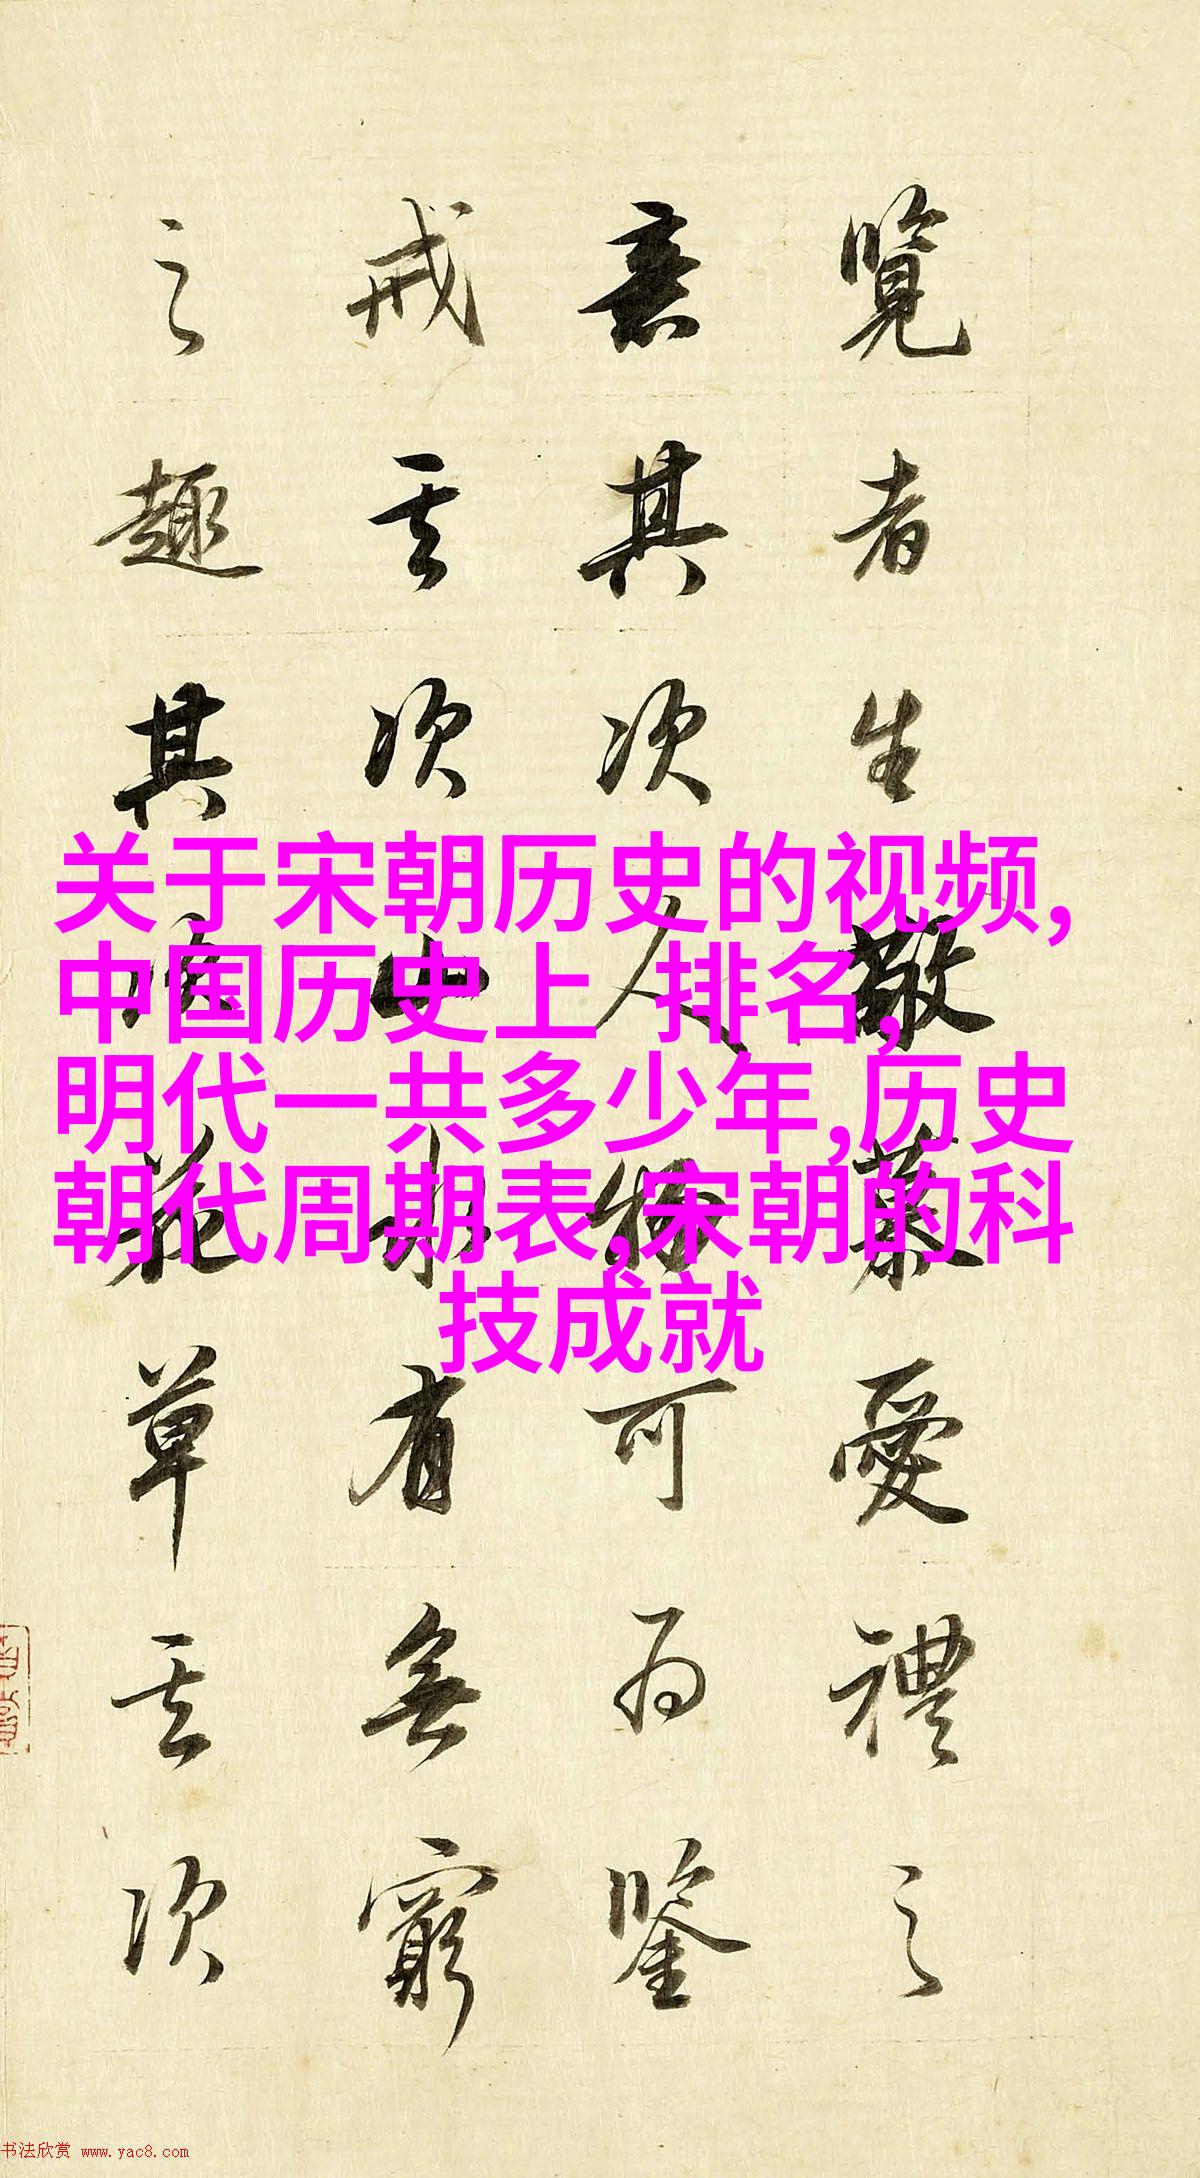 覽者生敬慕愛禮之
意其次人物可为鑒
戒其次山水有無窮
之趣其次花草其次
关于宋朝历史的视频,
中国历史上 排名,
明代一共多少年,历史
朝代周期表,宋朝的科
技成就
书法欣赏 www.yac8.com